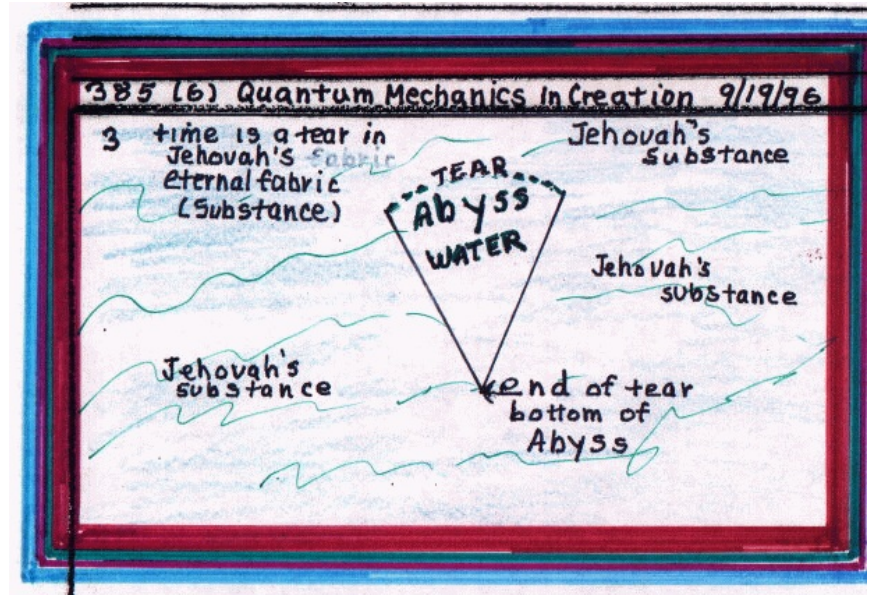 385 (6) Quantum Mechanics In Creation 9/19/96
3 time is a tear in
Jehovah's fabric
eternal fabric
(Substance)
Jehovah's
substance
TEAR
Abyss
WATER
Jehovah's
substance
Jehovah's
substance
end of tear
bottom of
Abyss